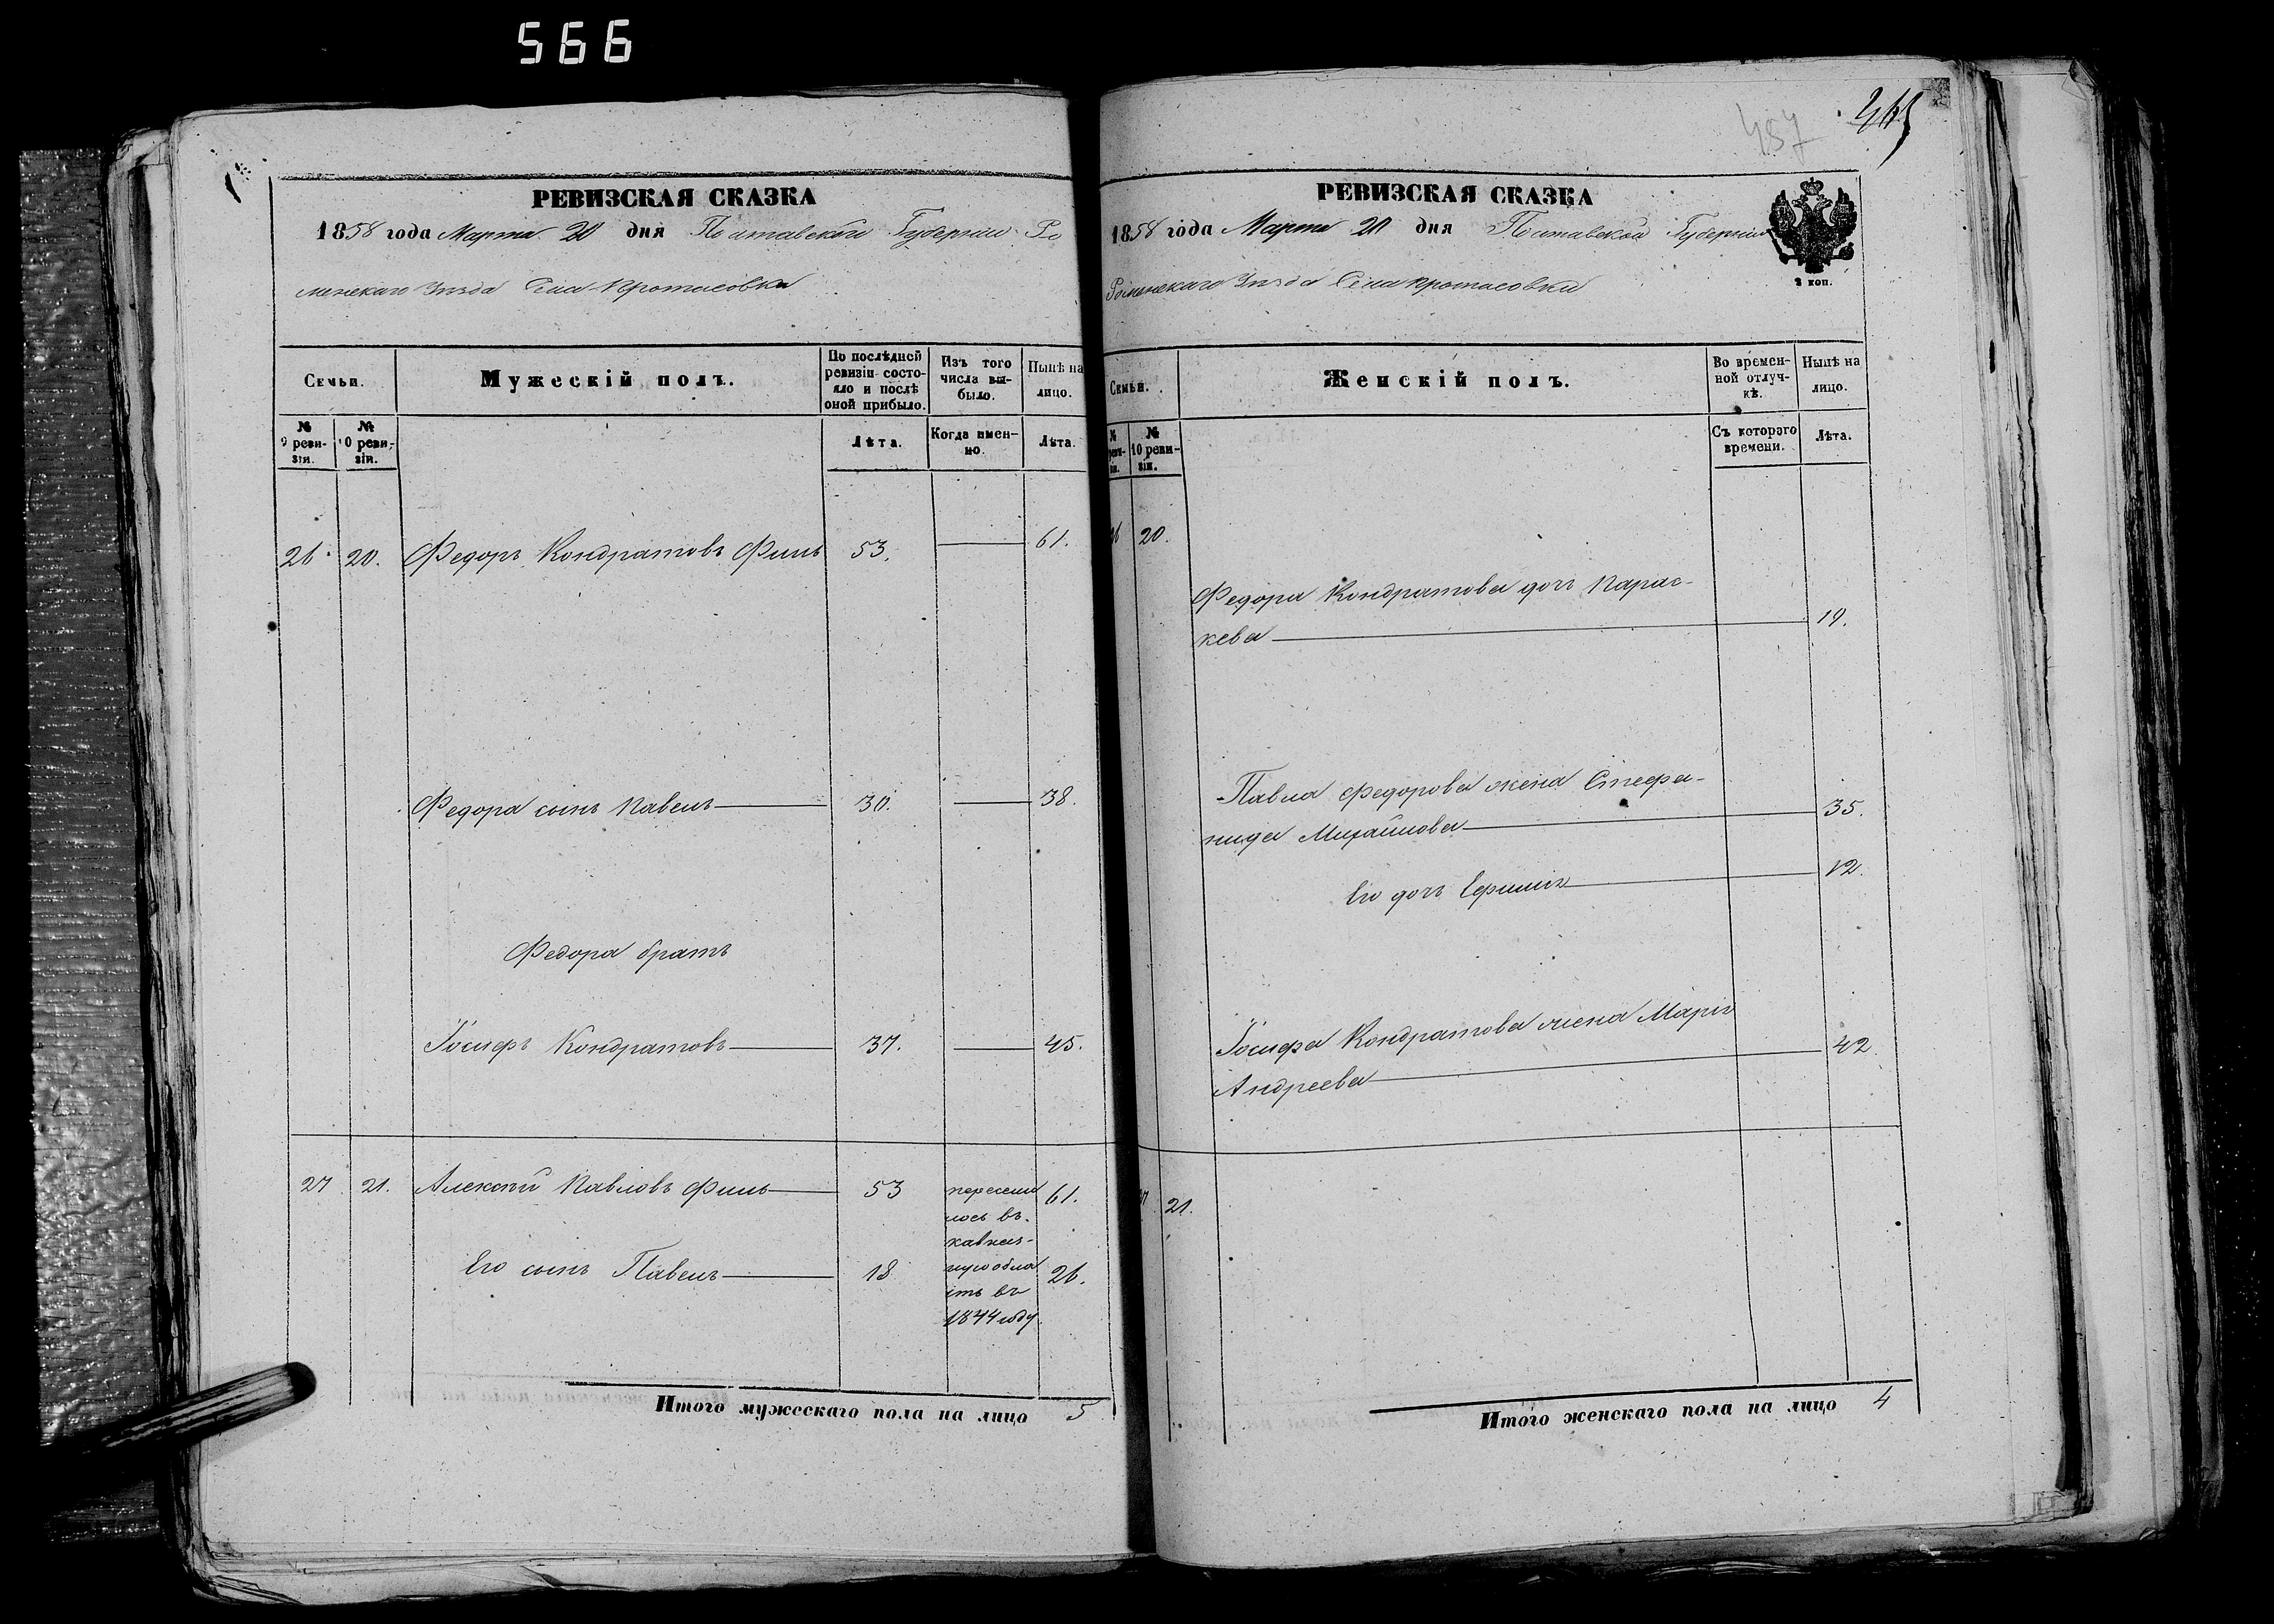 566
457
РЕВИЗСКАЯ СКАЗКА
1858 года Марта 20 дня Полтавской Губернии Ро
менскаго Уѣзда Села Протасовки
Семьи.
Мужескій полъ.
По послѣдней ревизіи состояло и послѣ оной прибыло.
Изъ того числа выбыло.
Нынѣ на лицо.
№ 9 ревизіи.
№ 10 ревизіи.
Лѣта.
Когда именно.
Лѣта.
26 20. Федоръ Кондратовъ Филь 53. 61.
Федора сынъ Павелъ 30. 38.
Федора братъ
Іосифъ Кондратовъ 37. 45.
27 21. Алексѣй Павловъ Филь 53 61.
Его сынъ Павелъ 18 26.
пересели
лось въ
кавказ-
скую обла
сть въ
1844 году
Итого мужескаго пола на лицо 5
РЕВИЗСКАЯ СКАЗКА
1858 года Марта 20 дня Полтавской Губернии
Роменскаго Уѣзда Села Протасовки
2 коп.
Семьи.
Женскій полъ.
Во временной отлучкѣ.
Нынѣ на лицо.
№ 10 ревизіи.
Съ котораго времени.
Лѣта.
26 20.
Федора Кондратова дочь Парас-
кева 19.
Павла Федорова жена Стефа-
нида Михайлова 35.
Его дочь 12.
Іосифа Кондратова жена Марія
Андреева 42
27 21.
Итого женскаго пола на лицо 4